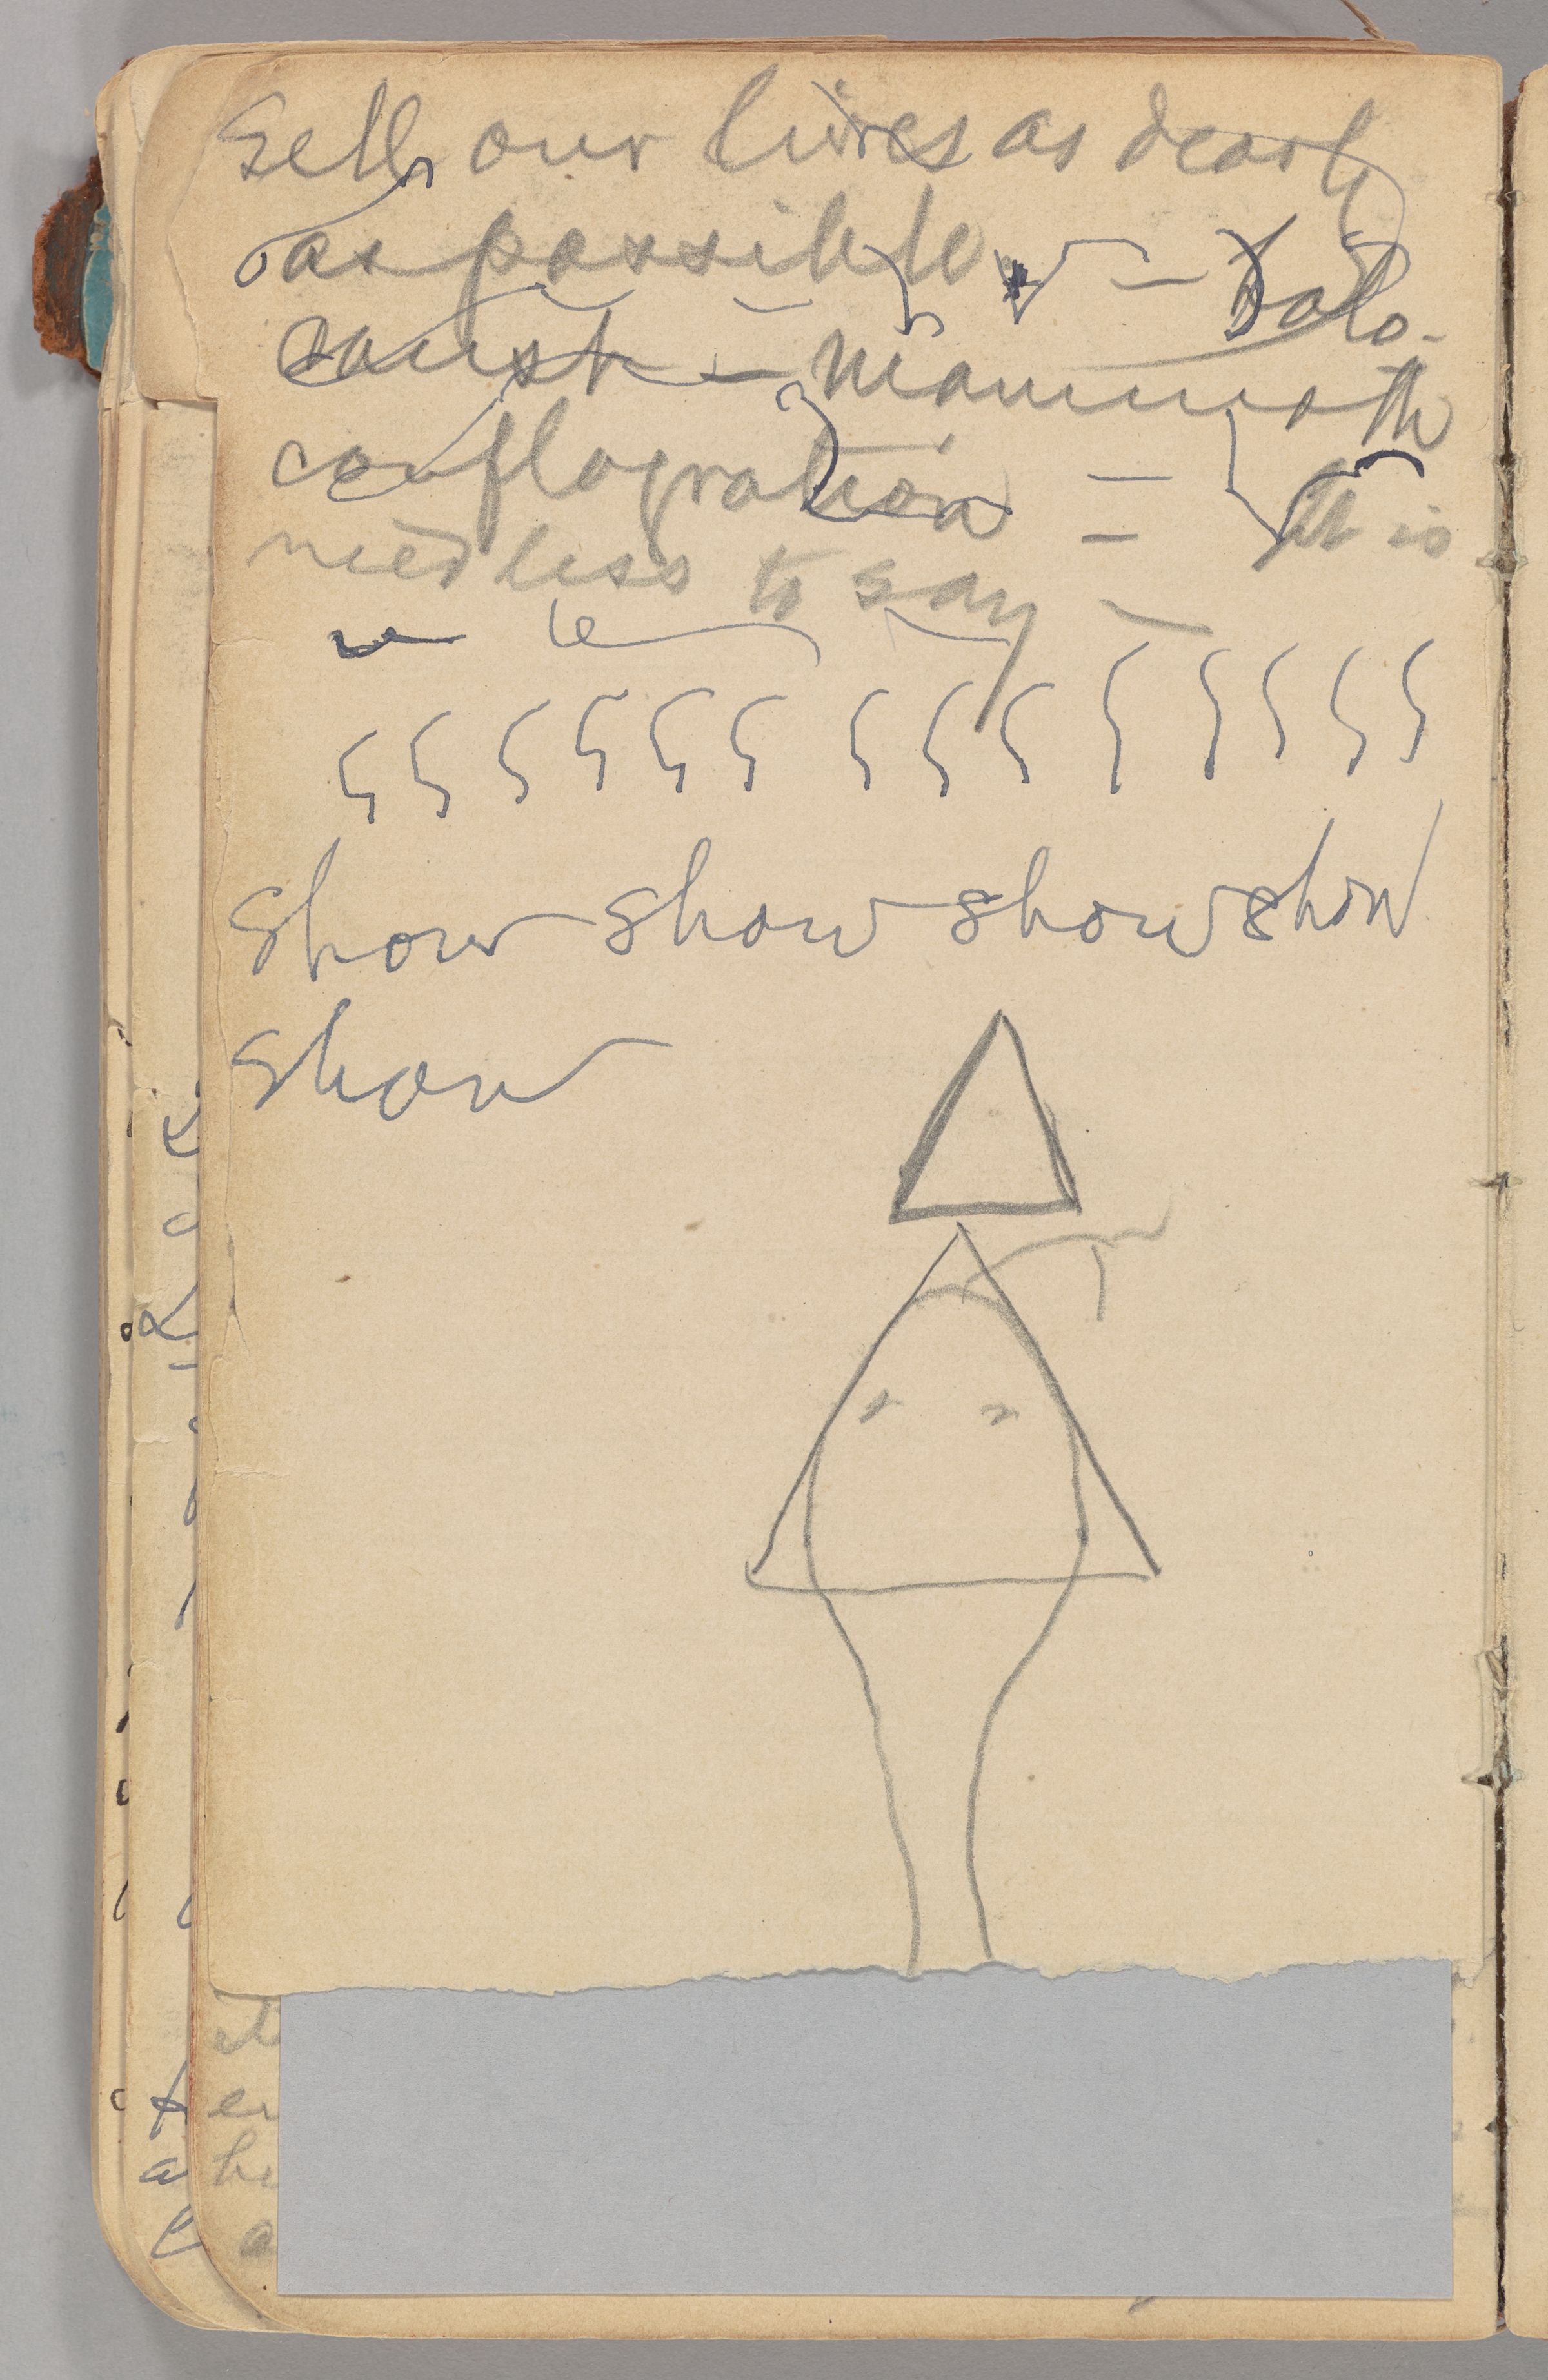 Sell our lives as dearly
as possible — holo-
caust — mammoth
conflagration — It is
needless to say —
show show show show
show